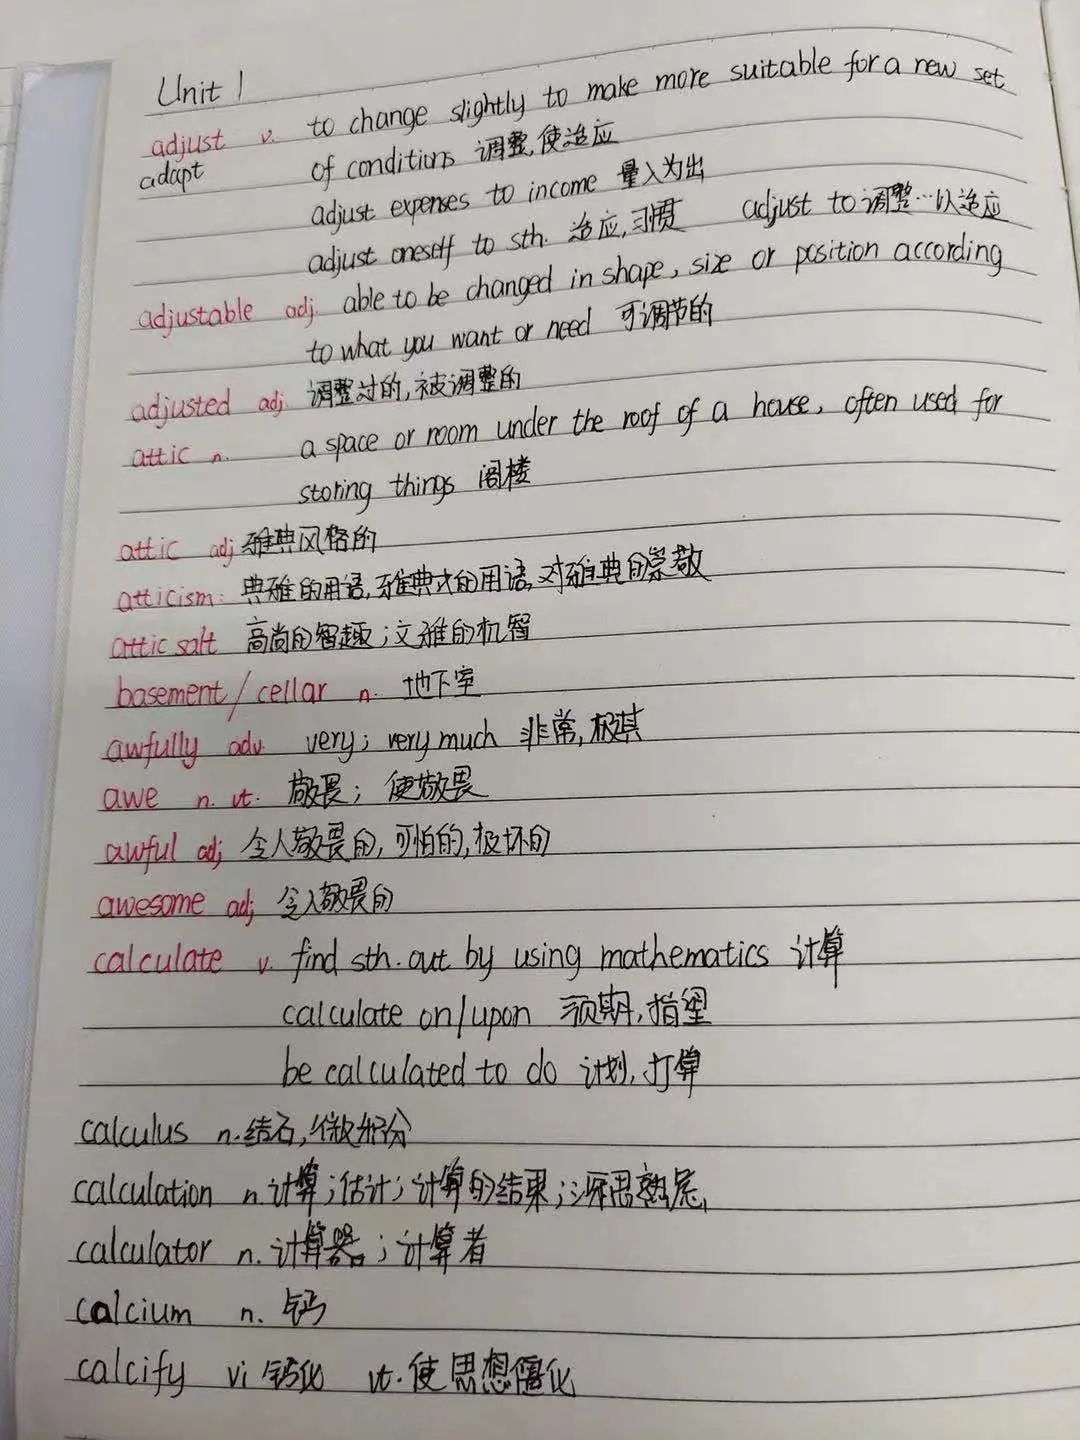 Unit 1
adjust v. to change slightly to make more suitable for a new set
adapt of conditions 调整,使适应
adjust expenses to income 量入为出
adjust oneself to sth. 适应,习惯 adjust to 调整…以适应
adjustable adj. able to be changed in shape, size or position according
to what you want or need 可调节的
adjusted adj. 调整过的,被调整的
attic n. a space or room under the roof of a house, often used for
storing things 阁楼
attic adj 雅典风格的
atticism: 典雅的用语,雅典式的用语,对雅典的崇敬
attic salt 高尚的智趣;文雅的机智
basement/cellar n. 地下室
awfully adv. very; very much 非常,极其
awe n. vt. 敬畏; 使敬畏
awful adj 令人敬畏的,可怕的,极坏的
awesome adj 令人敬畏的
calculate v. find sth. out by using mathematics 计算
calculate on/upon 预期,指望
be calculated to do 计划,打算
calculus n.结石,微积分
calculation n.计算;估计;计算的结果;深思熟虑
calculator n.计算器;计算者
calcium n. 钙
calcify vi 钙化 vt.使思想僵化